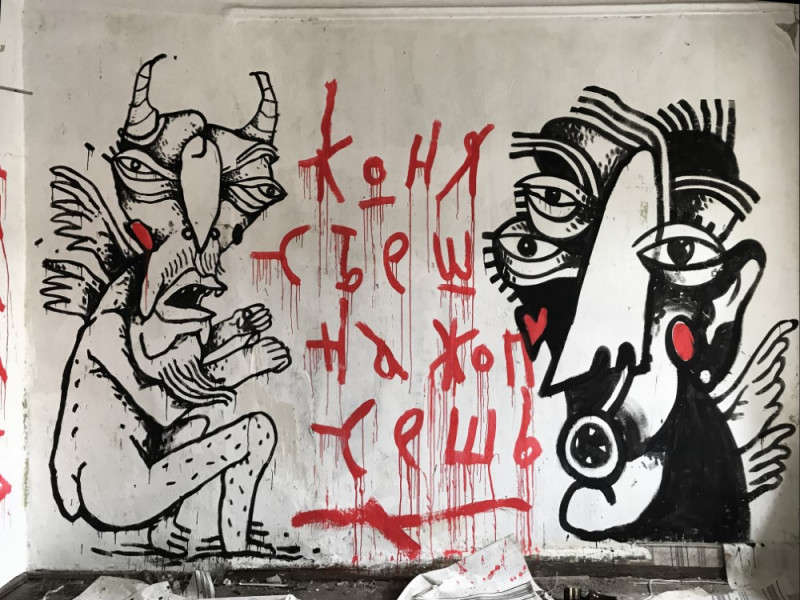 коня
съеш
на жоп
сешь